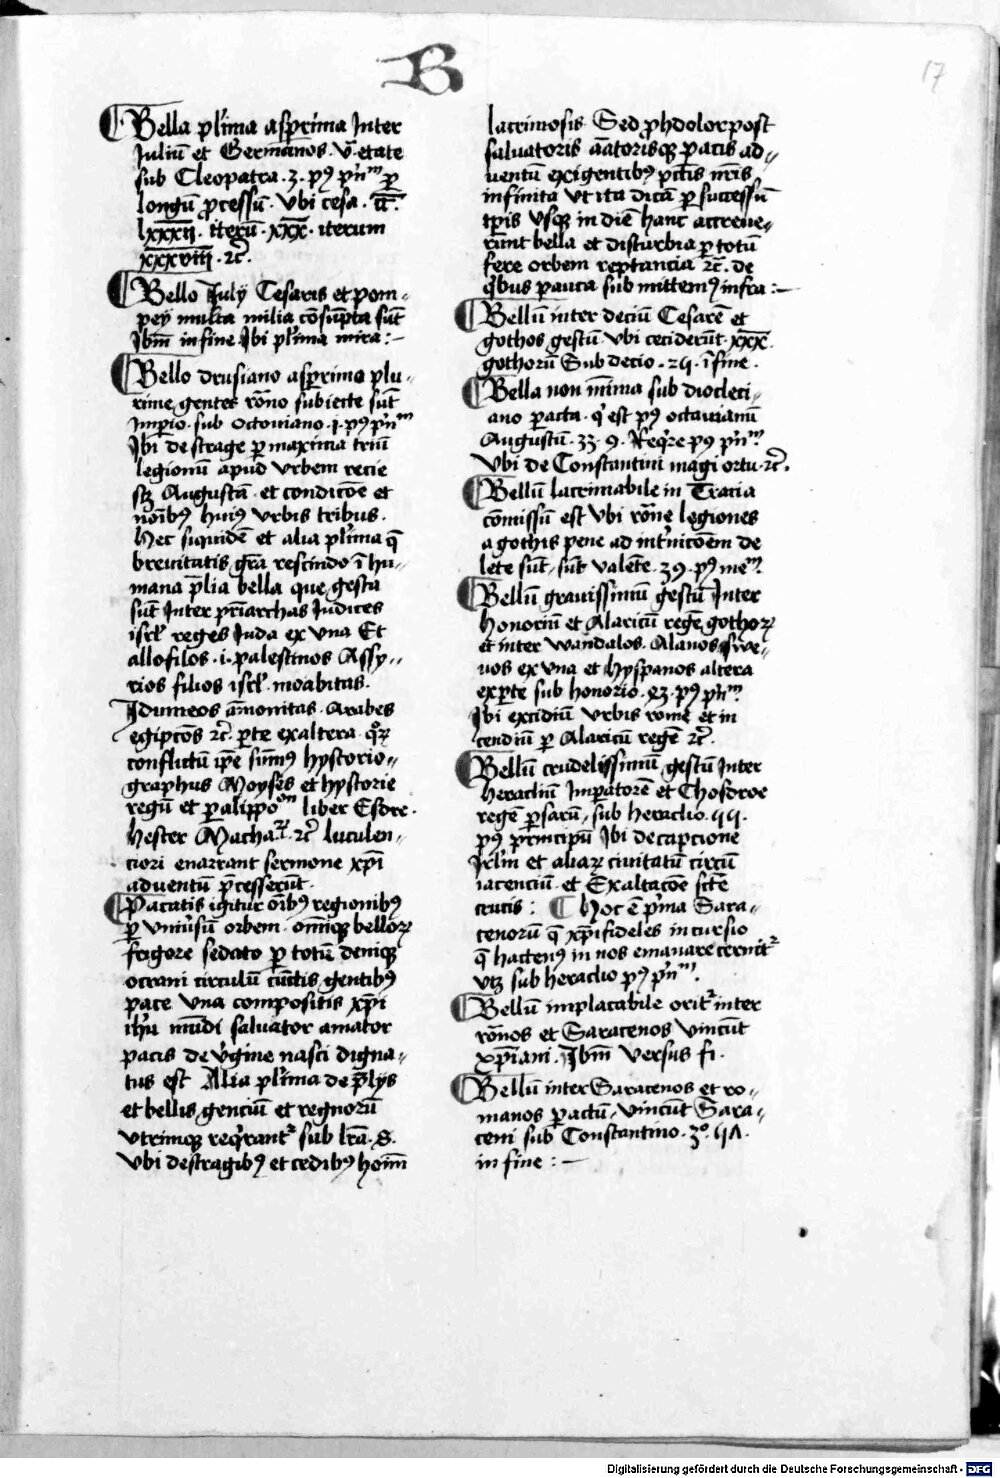 B
17
Bella pl'ima asp̱rima Inter
Juliū et Germanos. v̄. etate
sub Cleopatra. 3. pꝰ pⁱn̄ᵐ ꝑ
longū ꝓcessū. Vbi cesa. cc̄.
lxxxij. iterū. xxx. iterum
xxxviii. ⁊c̄.
Bello July Cesaris et pom-
pey multa milia cōsūpta sūt
Ibm̄ in fine Ibi pl'ima mira :-
Bello drusiano asꝑrimo plu-
rime gentes rōno subiecte sūt
Imꝑio. sub octoviano. j. pꝰ pⁱn̄ᵐ
Ibi de strage ꝑmaxima triū
legionū apud vrbem recie
sꝫ Augustā. et condicōe et
nōibꝰ huiꝰ vrbis tribus.
Hec siquidē et alia pl'ima q̄
brevitatis grā rescindo ī hu-
mana p̄lia bella que gesta
sūt Inter pr̄iarchas Iudices
isrl' reges Iuda ex vna Et
allofilos. i. palestinos Assy-
rios filios isrl'. moabitas.
Idumeos āmonitas. Arabes
egipcōs ⁊c̄. ꝑte exaltera. qͦꝝ
conflictū ip̄e sūmꝰ hystorio-
graphus Moyses et hystorie
regū et ꝑalippoᵒᵐ liber Esdre.
hester Macha. ⁊c̄ luculen-
ciori enarrant sermone xp̄i
adventū p̄cesserūt.
Pacatis igitur oībꝰ regionibꝰ
ꝑ vniūsum orbem. omīqꝫ belloꝝ
frigore sedato ꝑ totū deniqꝫ
occani circulū cūctis gentibꝰ
pace vna compositis xp̄i
ih'u mūdi salvator amator
pacis de v'gine nasci digna-
tus est Alia pl'ima de p̄lijs
et bellis genciū et regnorū
vtrimqꝫ reqⁱrant' sub lr̄a. S.
Vbi de stragibꝰ et cedibꝰ hoīm
lacrimosis. Sed ꝓhdolor post
saluatoris aatorisqꝫ pacis ad-
uentū exigentibꝰ pctīs nr̄is
infinita vt ita dicā ꝑ successū
tꝑis vsqꝫ in diē hanc accreve-
runt bella et disturbia ꝑ totū
fere orbem reptancia ⁊c̄. de
qⁱbus pauca sub mittemꝰ infra :-
Bellū inter deciū Cesarē et
gothos gestū vbi ceciderūt. xxx.
gothorū Sub decio. ī fine.
Bella non mīma sub diocleci-
ano ꝑacta. qⁱ est pꝰ octavianū
Augustū. 33. 9. Reqⁱre pꝰ pⁱn̄ᵐ.
Vbi de Constantini magi ortu. ⁊c̄.
Bellū lacrimabile in Tracia
cōmissū est vbi rōne legiones
a gothis pene ad int'nicōem de
lete sūt, sūt valēte. 39. pꝰ meᵐ.
Bellū gravissimū gestū Inter
Honoriū et Alaricū regē gothoꝝ
et inter wandalos. Alanos swe-
vos ex vna et hyspanos altera
exꝑte sub honorio. pꝰ pⁱn̄ᵐ
Ibi excidiū vrbis rome et in
cendiū ꝑ Alaricū regē ⁊c̄.
Bellū crudelissimū gestū Inter
Heracliū Imꝑatorē et Chosdroe
regē ꝑsarū, sub heraclio.
pꝰ principū Ibi de capcione
Irl'm et aliaꝝ civitatū circū
iacenciū. et Exaltacōe sctē
crucis : Hoc ē pⁱma Sara-
cenorū q̄ xp̄ifideles incursio
q̄ hactenꝰ in nos emanare cernit'
vtꝫ sub heraclio pꝰ pⁱn̄ᵐ.
Bellū implacabile orit' inter
rōnos et Saracenos vincūt
xp̄iani. Ibm̄ versus fi.
Bellū inter Saracenos et ro-
manos ꝑactū, vincūt Sara-
ceni sub Constantino. 3°.
in fine :-
Digitalisierung gefördert durch die Deutsche Forschungsgemeinschaft - DFG